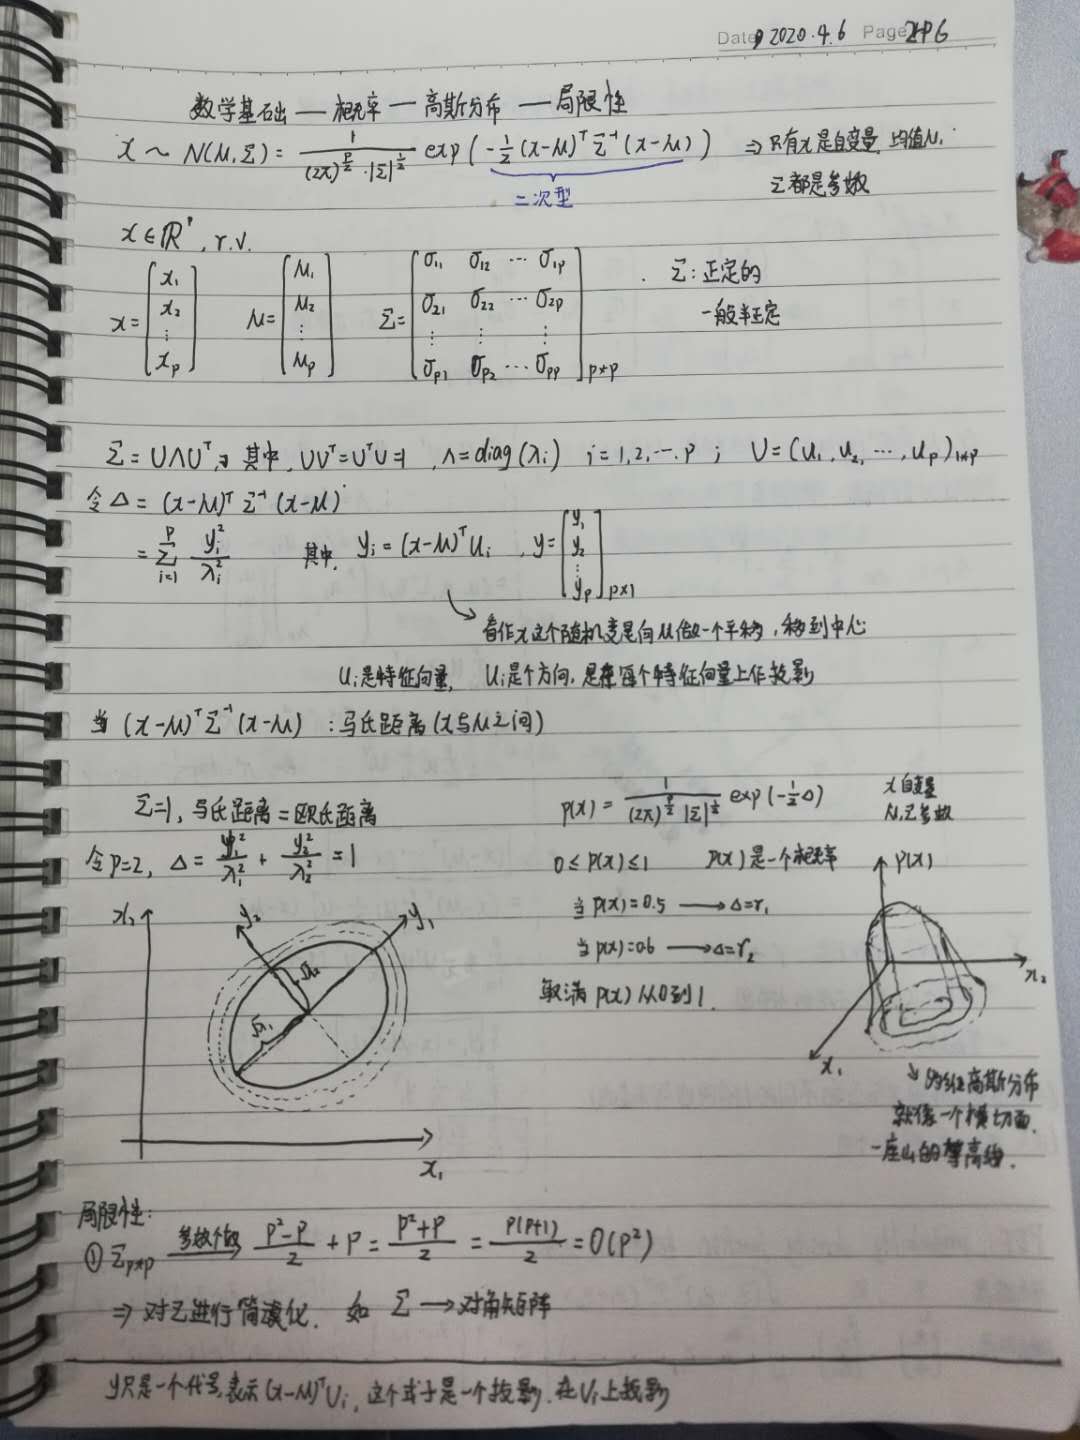 Date 2020.4.6 Page
数学基础 — 概率 — 高斯分布 — 局限性
x ~ N(μ,Σ) = 1/((2π)^{p/2}·|Σ|^{1/2}) exp(-1/2 (x-μ)^T Σ^{-1} (x-μ)) ⇒ 只有x是自变量, 均值μ,
二次型 Σ都是参数
x∈R^p, r.v.
x = [x_1 x_2 ⋮ x_p] μ = [μ_1 μ_2 ⋮ μ_p] Σ = [σ_11 σ_12 ⋯ σ_1p; σ_21 σ_22 ⋯ σ_2p; ⋮ ⋮ ⋮; σ_p1 σ_p2 ⋯ σ_pp]_{p*p} . Σ: 正定的
一般半正定
Σ = UΛU^T, 其中, UU^T = U^TU = I, Λ = diag(λ_i) i = 1,2,⋯,p ; U = (u_1, u_2, ⋯, u_p)_{1*p}
令Δ = (x-μ)^T Σ^{-1} (x-μ)
= Σ_{i=1}^{p} y_i^2/λ_i^2 其中, y_i = (x-μ)^T u_i , y = [y_1 y_2 ⋮ y_p]_{p×1}
↳ 看作x这个随机变量向μ做一个平移, 移到中心
u_i是特征向量, u_i是个方向, 是在每个特征向量上作投影
当 (x-μ)^T Σ^{-1} (x-μ) : 马氏距离(x与μ之间)
Σ=I, 马氏距离 = 欧氏距离 p(x) = 1/((2π)^{p/2} |Σ|^{1/2}) exp(-1/2 Δ) x自变量
μ,Σ参数
令p=2, Δ = y_1^2/λ_1^2 + y_2^2/λ_2^2 = 1 0≤p(x)≤1 p(x)是一个概率 p(x)
x_2 y_2 y_1 当p(x)=0.5 ⟶ Δ=r_1
当p(x)=0.6 ⟶ Δ=r_2
取满 p(x) 从0到1. x_2
x_1
高斯分布
就像一个横切面,
一座山的等高线.
x_1
局限性:
① Σ_{p*p} 参数个数 → (p^2-p)/2 + p = (p^2+p)/2 = p(p+1)/2 = O(p^2)
⇒ 对Σ进行简漠化. 如 Σ ⟶ 对角矩阵
y只是一个代号,表示 (x-μ)^T u_i, 这个式子是一个投影, 在u_i上投影